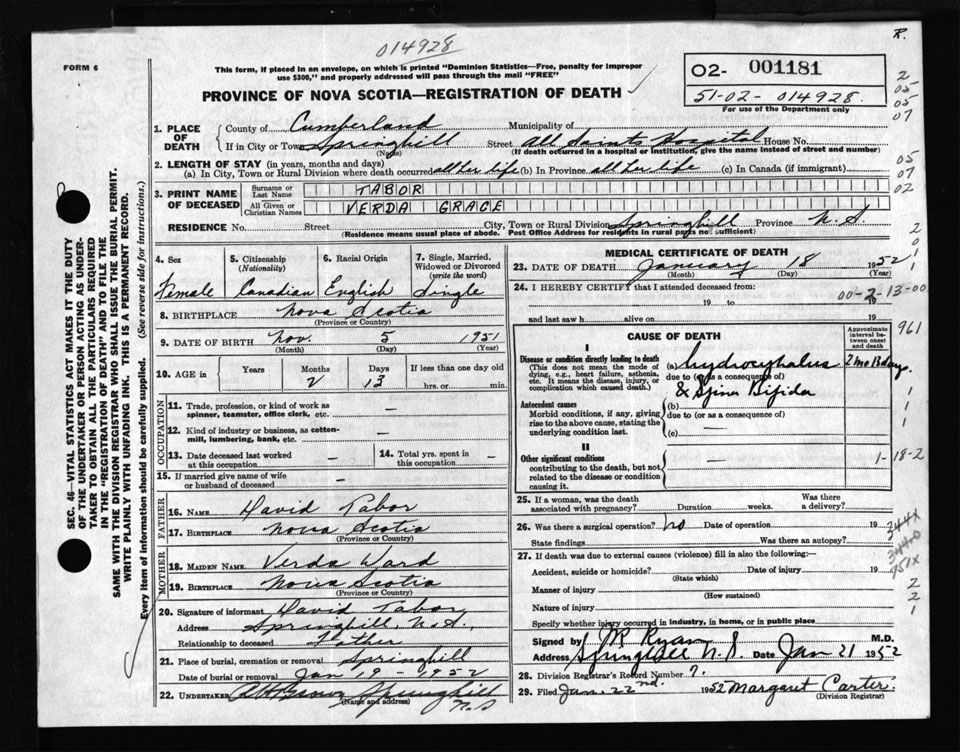 014928
R.
FORM 6
This form, if placed in an envelope, on which is printed "Dominion Statistics—Free, penalty for improper
use $300," and properly addressed will pass through the mail "FREE"
PROVINCE OF NOVA SCOTIA—REGISTRATION OF DEATH
O2- 001181
51-02- 014928.
For use of the Department only
2
05
05
07
05
07
02
SEC. 46—VITAL STATISTICS ACT MAKES IT THE DUTY
OF THE UNDERTAKER OR PERSON ACTING AS UNDER-
TAKER TO OBTAIN ALL THE PARTICULARS REQUIRED
IN THE "REGISTRATION OF DEATH" AND TO FILE THE
SAME WITH THE DIVISION REGISTRAR WHO SHALL ISSUE THE BURIAL PERMIT.
WRITE PLAINLY WITH UNFADING INK. THIS IS A PERMANENT RECORD.
Every item of information should be carefully supplied. (See reverse side for instructions.)
1. PLACE OF DEATH
County of Cumberland Municipality of
If in City or Town Springhill Street All Saints Hospital House No.
(Name) (If death occurred in a hospital or institution, give the name instead of street and number)
2. LENGTH OF STAY (in years, months and days)
(a) In City, Town or Rural Division where death occurred all her life (b) In Province all her life (c) In Canada (if immigrant)
3. PRINT NAME OF DECEASED
Surname or Last Name TABOR
All Given or Christian Names VERDA GRACE
RESIDENCE No. Street City, Town or Rural Division Springhill Province N.S.
(Residence means usual place of abode. Post Office Address for residents in rural parts not sufficient)
4. Sex Female
5. Citizenship (Nationality) Canadian
6. Racial Origin English
7. Single, Married, Widowed or Divorced (write the word) Single
8. BIRTHPLACE Nova Scotia
(Province or Country)
9. DATE OF BIRTH Nov. 5 1951
(Month) (Day) (Year)
10. AGE in Years Months 2 Days 13 If less than one day old
hrs. or min.
OCCUPATION
11. Trade, profession, or kind of work as
spinner, teamster, office clerk, etc. —
12. Kind of industry or business, as cotton-
mill, lumbering, bank, etc. —
13. Date deceased last worked
at this occupation —
14. Total yrs. spent in
this occupation —
15. If married give name of wife
or husband of deceased —
FATHER
16. NAME David Tabor
17. BIRTHPLACE Nova Scotia
(Province or Country)
MOTHER
18. MAIDEN NAME Verda Ward
19. BIRTHPLACE Nova Scotia
(Province or Country)
20. Signature of informant David Tabor
Address Springhill, N.S.,
Relationship to deceased Father
21. Place of burial, cremation or removal Springhill
Date of burial or removal Jan 19 - 1952
22. UNDERTAKER Brown Springhill
N.S
(Name and address)
MEDICAL CERTIFICATE OF DEATH
23. DATE OF DEATH January 18 1952
(Month) (Day) (Year)
24. I HEREBY CERTIFY that I attended deceased from:
19 to 19
00-2-13-00
and last saw h alive on
CAUSE OF DEATH
Approximate interval between onset and death
961
I
Disease or condition directly leading to death
(This does not mean the mode of
dying, e.g., heart failure, asthenia,
etc. It means the disease, injury, or
complication which caused death.)
(a) hydrocephalus 2 mo 13 days.
due to (or as a consequence of)
& Spina Bifida
Antecedent causes
Morbid conditions, if any, giving
rise to the above cause, stating the
underlying condition last.
(b)
due to (or as a consequence of)
(c) —
II
Other significant conditions
contributing to the death, but not
related to the disease or condition
causing it.
1-18-2
25. If a woman, was the death
associated with pregnancy? Duration weeks. Was there a delivery?
26. Was there a surgical operation? No Date of operation 19
State findings Was there an autopsy?
344X
3440
751X
27. If death was due to external causes (violence) fill in also the following:—
Accident, suicide or homicide? Date of injury 19
(State which)
Manner of injury
(How sustained)
Nature of injury
2
2
1
Specify whether injury occurred in industry, in home, or in public place
Signed by JR Ryan M.D.
Address Springhill N.S. Date Jan 21 1952
28. Division Registrar's Record Number 7.
29. Filed Jan. 22nd. 1952 Margaret Carter.
(Division Registrar)